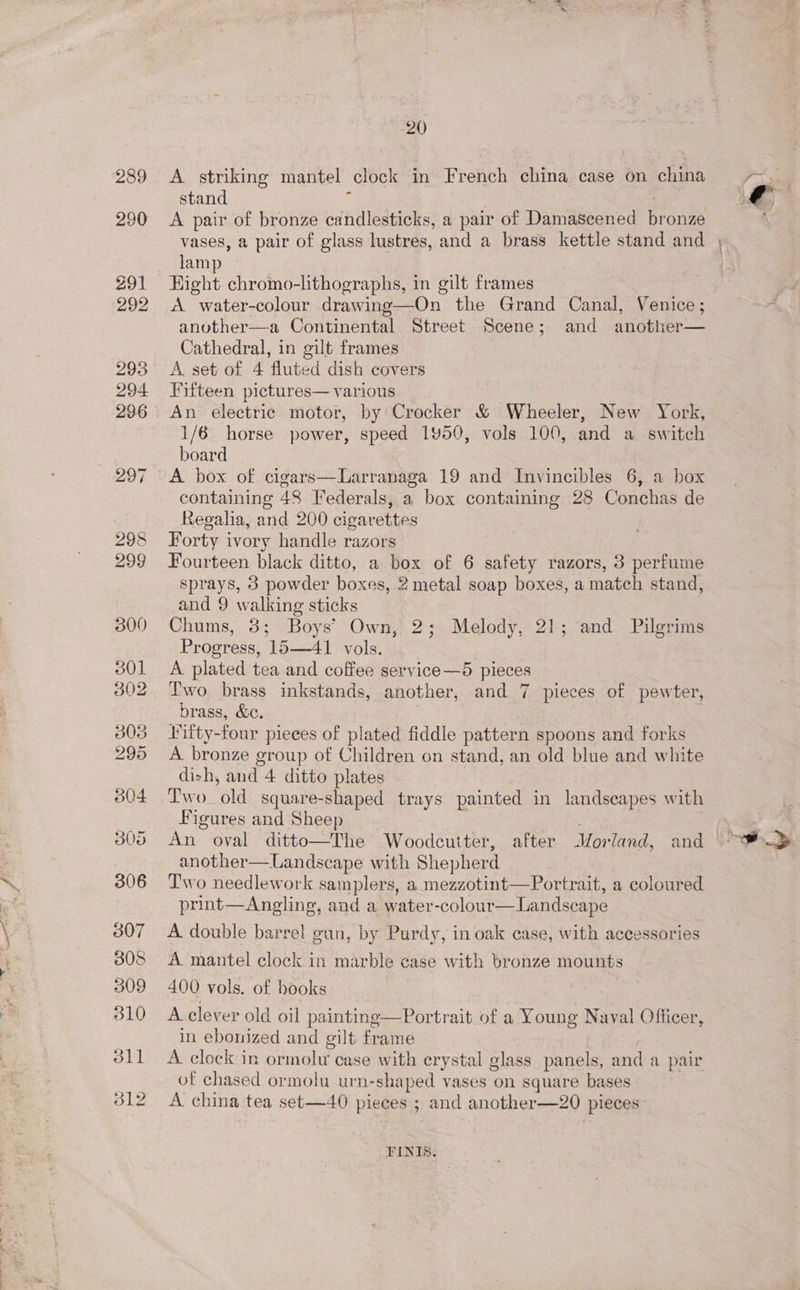 20
289 A striking mantel clock in French china case on china
stand
290 A pair of bronze candlesticks, a pair of Damascened bronze
vases, a pair of glass lustres, and a brass kettle stand and
lamp
291 Eight chromo-lithographs, in gilt frames
292 A water-colour drawing—On the Grand Canal, Venice;
another—a Continental Street Scene; and another—
Cathedral, in gilt frames
293 A set of 4 fluted dish covers
294 Fifteen pictures—various
296 An electric motor, by Crocker & Wheeler, New York,
1/6 horse power, speed 1950, vols 100, and a switch
board
297 A box of cigars—Larranaga 19 and Invincibles 6, a box
containing 48 Federals, a box containing 28 Conchas de
Regalia, and 200 cigarettes
298 Forty ivory handle razors
299 Fourteen black ditto, a box of 6 safety razors, 3 perfume
sprays, 3 powder boxes, 2 metal soap boxes, a match stand,
and 9 walking sticks
300 Chums, 3; Boys' Own, 2; Melody, 21; and Pilgrims
Progress, 15—41 vols.
301 A plated tea and coffee service—5 pieces
302 Two brass inkstands, another, and 7 pieces of pewter,
brass, &c.
303 Fifty-four pieces of plated fiddle pattern spoons and forks
295 A bronze group of Children on stand, an old blue and white
dish, and 4 ditto plates
304 Two old square-shaped trays painted in landscapes with
Figures and Sheep
305 An oval ditto—The Woodcutter, after Morland, and
another—Landscape with Shepherd
306 Two needlework samplers, a mezzotint—Portrait, a coloured
print—Angling, and a water-colour—Landscape
307 A double barrel gun, by Purdy, in oak case, with accessories
308 A mantel clock in marble case with bronze mounts
309 400 vols. of books
310 A clever old oil painting—Portrait of a Young Naval Officer,
in ebonized and gilt frame
311 A clock in ormolu case with crystal glass panels, and a pair
of chased ormolu urn-shaped vases on square bases
312 A china tea set—40 pieces ; and another—20 pieces
FINIS.